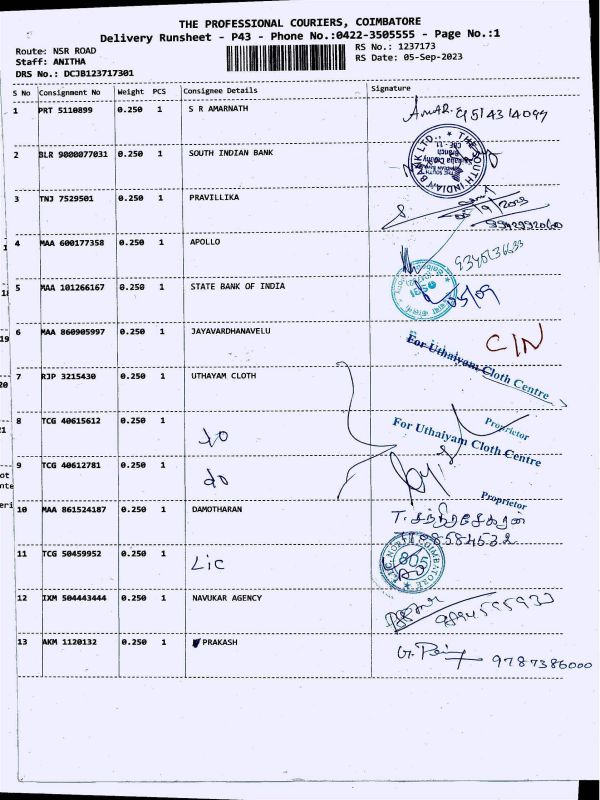 THE PROFESSIONAL COURIERS, COIMBATORE
Delivery Runsheet - P43 - Phone No.:0422-3505555 - Page No.:1
Route: NSR ROAD
Staff: ANITHA
DRS No.: DCJB123717301
RS No.: 1237173
RS Date: 05-Sep-2023
S No Consignment No Weight PCS Consignee Details Signature
1 PRT 5110899 0.250 1 S R AMARNATH AMAR.
2 BLR 9000077031 0.250 1 SOUTH INDIAN BANK
3 TNJ 7529501 0.250 1 PRAVILLIKA
05/9/2023
4 MAA 600177358 0.250 1 APOLLO
5 MAA 101266167 0.250 1 STATE BANK OF INDIA 05/09
6 MAA 860905997 0.250 1 JAYAVARDHANAVELU C/N
For Uthaiyam Cloth Centre
7 RJP 3215430 0.250 1 UTHAYAM CLOTH
Proprietor
8 TCG 40615612 0.250 1 do
For Uthaiyam Cloth Centre
9 TCG 40612781 0.250 1 do
Proprietor
10 MAA 861524187 0.250 1 DAMOTHARAN T. சந்திரசேகரன்
11 TCG 50459952 0.250 1 LIC
LIC NORTH COIMBATORE 805
12 IXM 504443444 0.250 1 NAVUKAR AGENCY
13 AKM 1120132 0.250 1 PRAKASH 9787386000